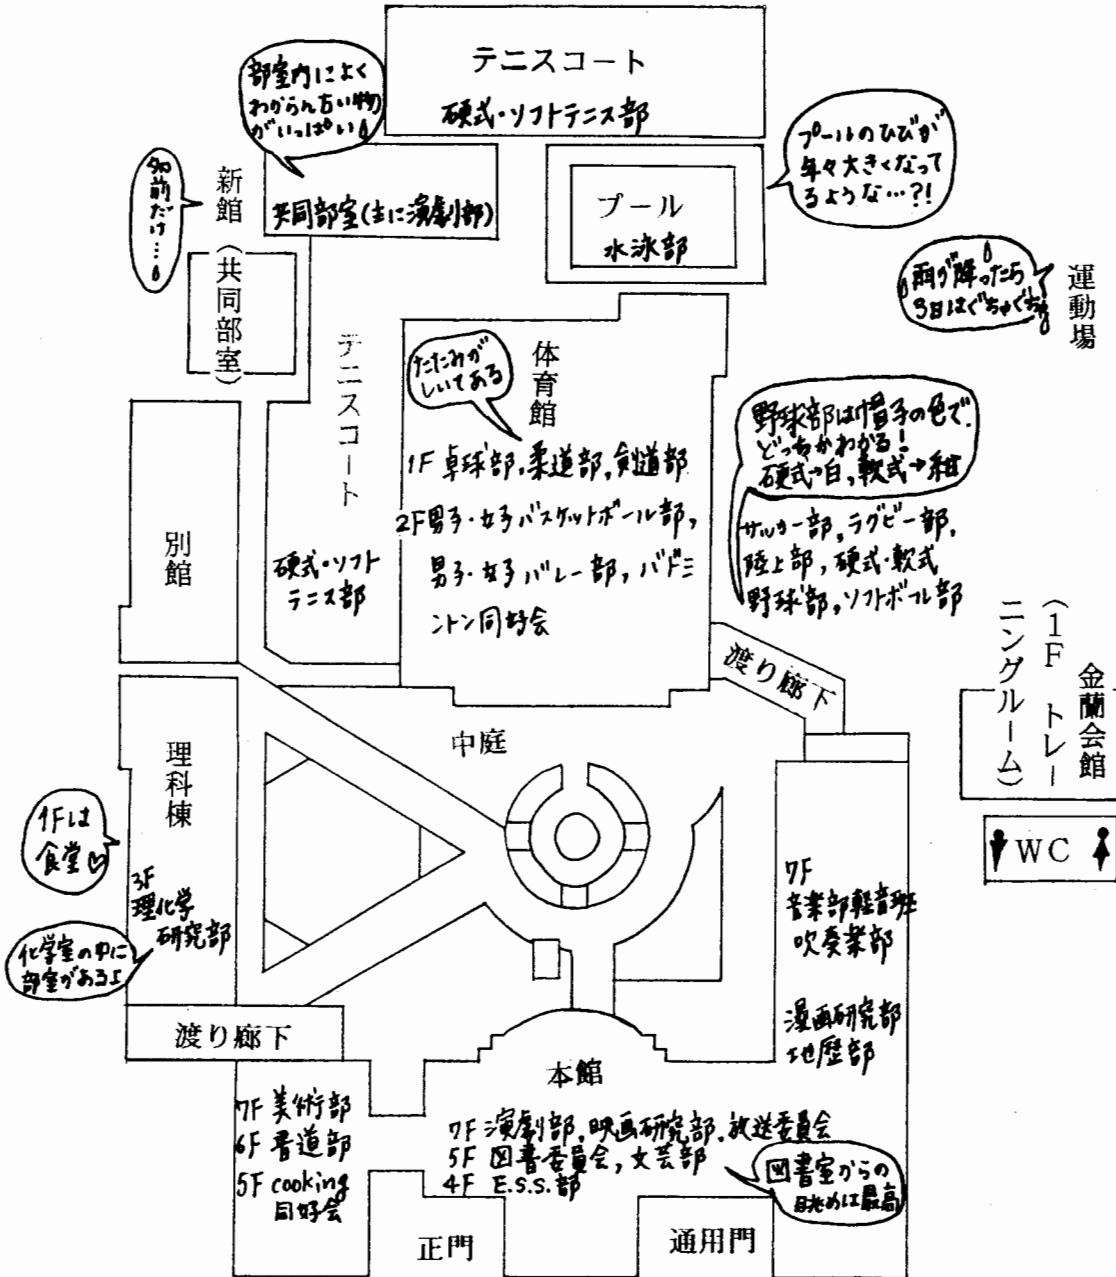 テニスコート
硬式・ソフトテニス部
部室内によく
わからん古い物
がいっぱい
共同部室(主に演劇部)
プール
水泳部
プールのひびが
年々大きくなって
るような…?!
新館(共同部室)
名前だけ…
雨が降ったら
3日はぐちゃぐちゃ
運動場
テニスコート
硬式・ソフト
テニス部
体育館
たたみが
しいてある
1F 卓球部,柔道部,剣道部
2F男子・女子バスケットボール部,
男子・女子バレー部,バドミ
ントン同好会
野球部は帽子の色で
どっちかわかる!
硬式→白,軟式→紺
サッカー部,ラグビー部,
陸上部,硬式・軟式
野球部,ソフトボール部
別館
渡り廊下
金蘭会館
(1F トレー
ニングルーム)
WC
中庭
理科棟
1Fは
食堂♡
3F
理化学
研究部
化学室の中に
部室があるよ
渡り廊下
7F
音楽部軽音班
吹奏楽部
漫画研究部
地歴部
本館
7F 美術部
6F 書道部
5F cooking
同好会
7F 演劇部,映画研究部,放送委員会
5F 図書委員会,文芸部
4F E.S.S.部
図書室からの
眺めは最高
正門
通用門